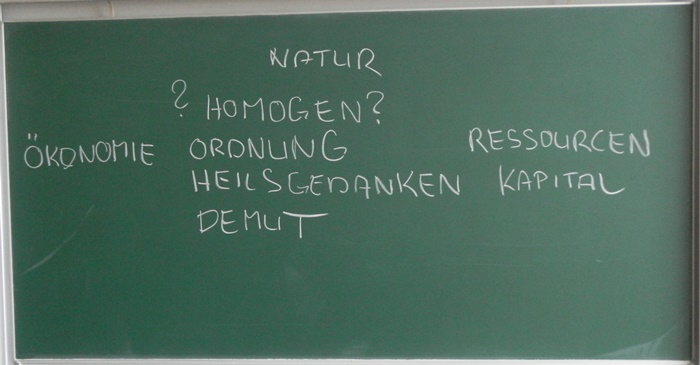 NATUR
? HOMOGEN?
ÖKONOMIE ORDNUNG RESSOURCEN
HEILSGEDANKEN KAPITAL
DEMUT